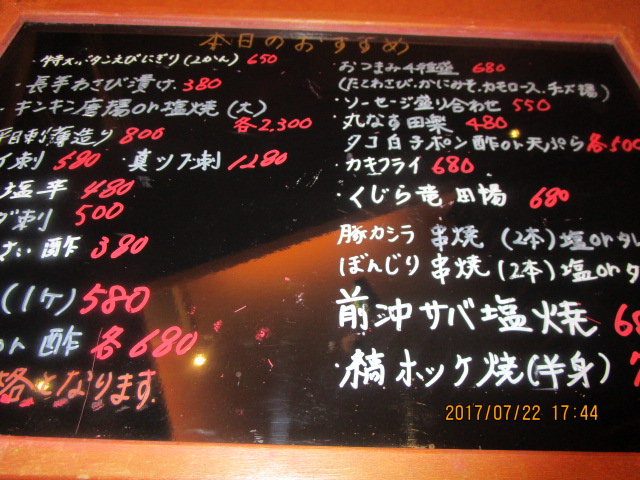 本日のおすすめ
・特大ボタンえびにぎり(2カン) 650
・長芋わさび漬け 380
・キンキン唐揚or塩焼(大)
各2,300
平目刺薄造り 800
イ刺 580 ・真ツブ刺 1280
塩辛 480
ダ刺 500
酢 380
(1ヶ) 580
酢 各680
格となります
おつまみ4種盛 680
(たこわさび、かにみそ、カモロース、チーズ揚)
・ソーセージ盛り合わせ 550
・丸なす田楽 480
タコ白子ポン酢or天ぷら 各500
・カキフライ 680
・くじら竜田揚 680
豚カシラ 串焼(2本)塩orタレ
ぼんじり 串焼(2本)塩orタ
前沖サバ塩焼 68
・縞ホッケ焼(半身)
2017/07/22 17:44